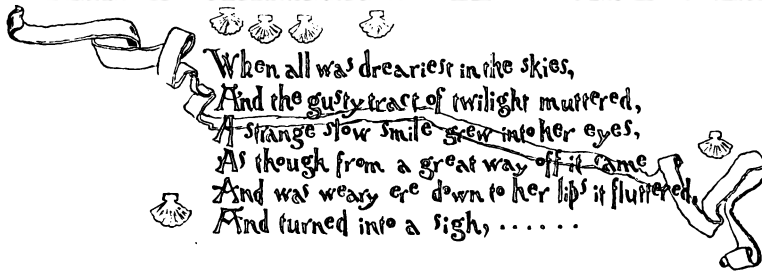 When all was dreariest in the skies,
And the gusty tract of twilight muttered,
A strange slow smile grew into her eyes,
As though from a great way off it came
And was weary ere down to her lips it fluttered,
And turned into a sigh, ......